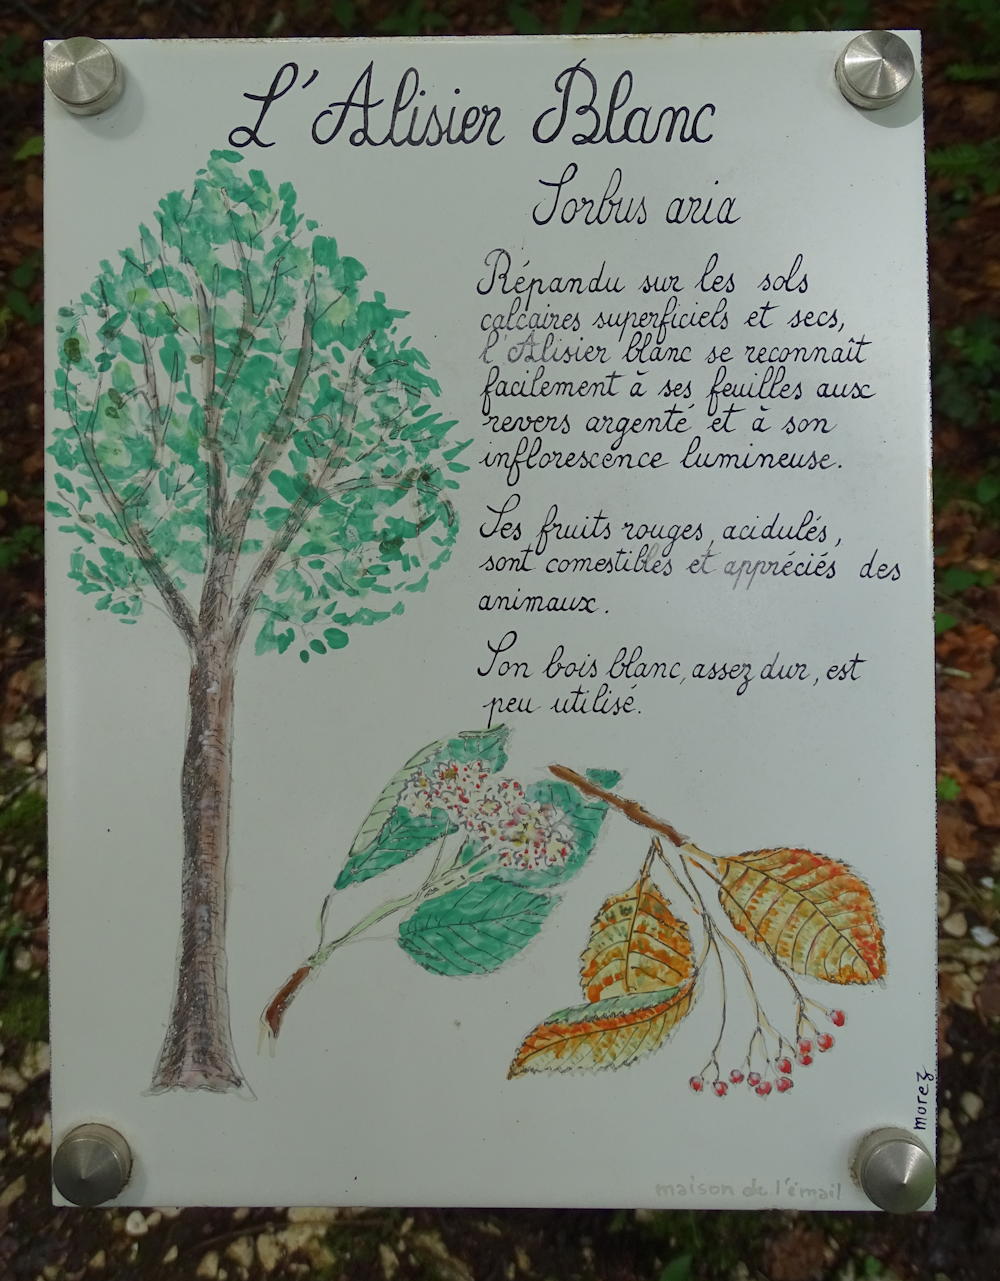 L'Alisier Blanc
Sorbus aria
Répandu sur les sols
calcaires superficiels et secs,
l'Alisier blanc se reconnaît
facilement à ses feuilles aux
revers argenté et à son
inflorescence lumineuse.
Ses fruits rouges, acidulés,
sont comestibles et appréciés des
animaux.
Son bois blanc, assez dur, est
peu utilisé.
morez
maison de l'émail